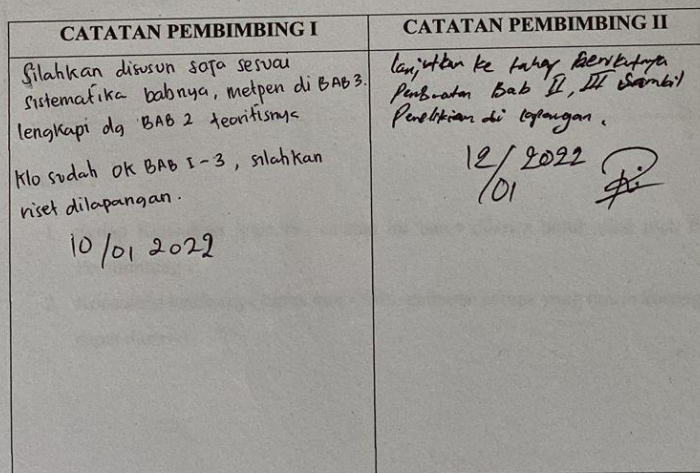 CATATAN PEMBIMBING I
Silahkan disusun saja sesuai
sistematika babnya, metpen di BAB 3.
lengkapi dg BAB 2 teoritisnya
Klo sudah ok BAB I-3, silahkan
riset dilapangan.
10/01 2022
CATATAN PEMBIMBING II
lanjutkan ke tahap berikutnya
Pembuatan Bab II, III sambil
Penelitian di lapangan.
12/01 2022